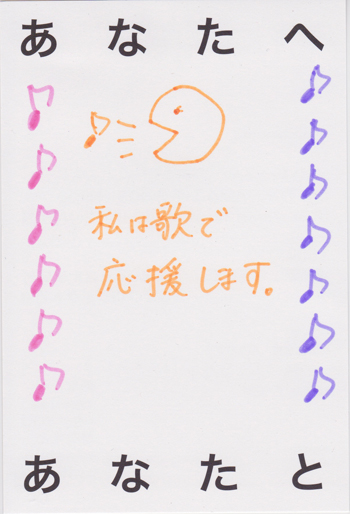 あなたへ
私は歌で
応援します。
あなたと